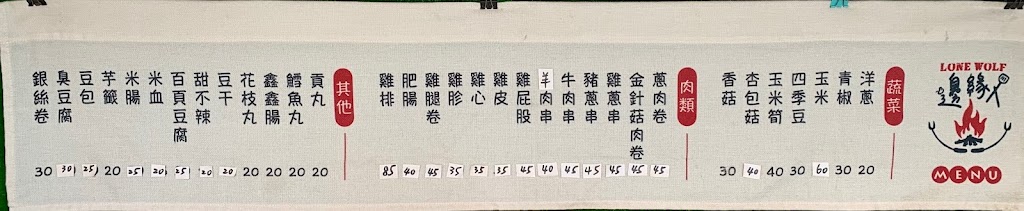 LONE WOLF
邊緣人
MENU
蔬菜
洋蔥 20
青椒 30
玉米 60
四季豆 30
玉米筍 40
杏包菇 40
香菇 30
肉類
蔥肉卷 45
金針菇肉卷 45
雞蔥串 45
豬蔥串 45
牛肉串 45
羊肉串 40
雞屁股 45
雞皮 35
雞心 35
雞胗 35
雞腿卷 45
肥腸 40
雞排 85
其他
貢丸 20
鱈魚丸 20
鑫鑫腸 20
花枝丸 20
豆干 20
甜不辣 20
百頁豆腐 25
米血 20
米腸 25
芋籤 20
豆包 25
臭豆腐 30
銀絲卷 30